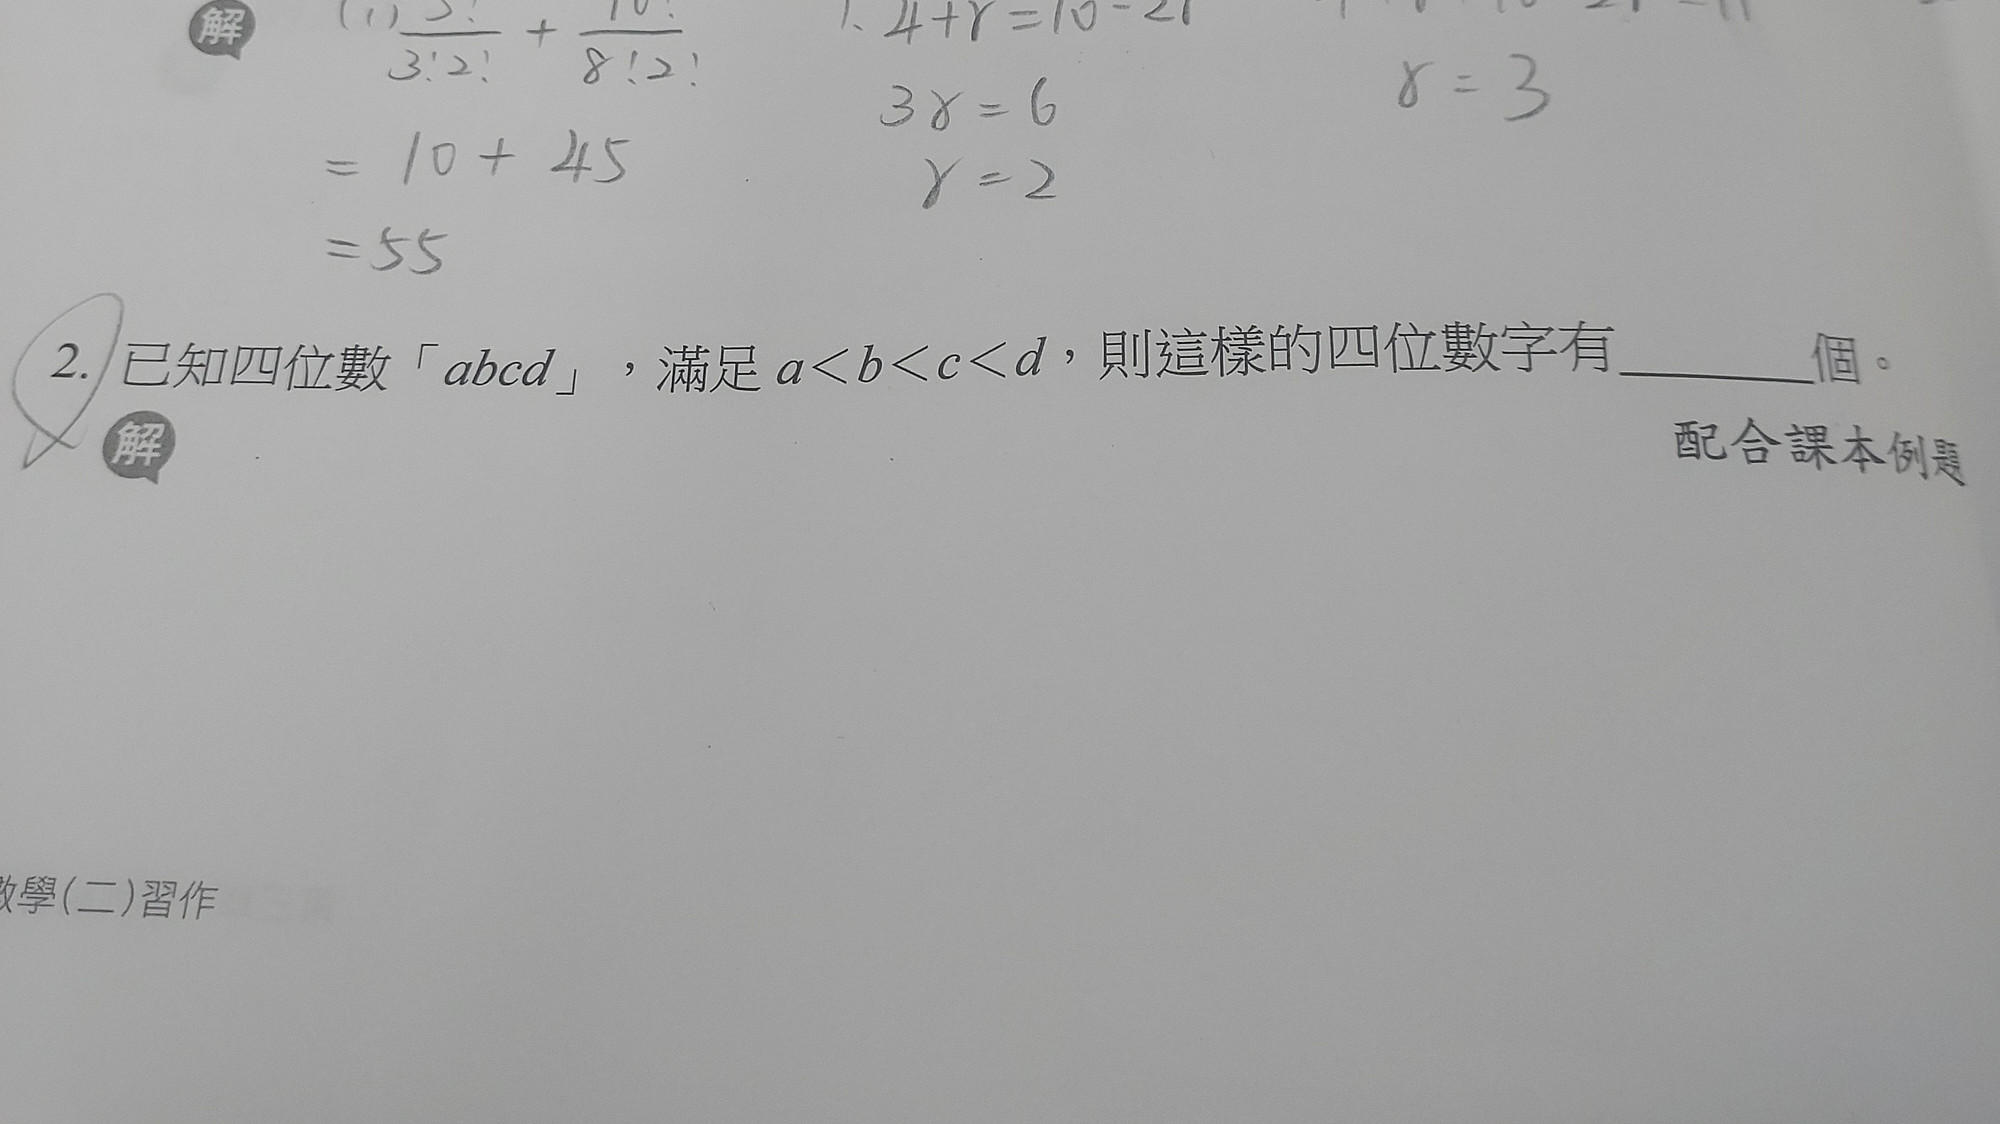 解
(1) 5!/3!2! + 10!/8!2!
4+r=10-2r
3r=6
r=3
= 10 + 45
r=2
=55
2. 已知四位數「abcd」，滿足 a＜b＜c＜d，則這樣的四位數字有______個。
配合課本例題
解
數學(二)習作